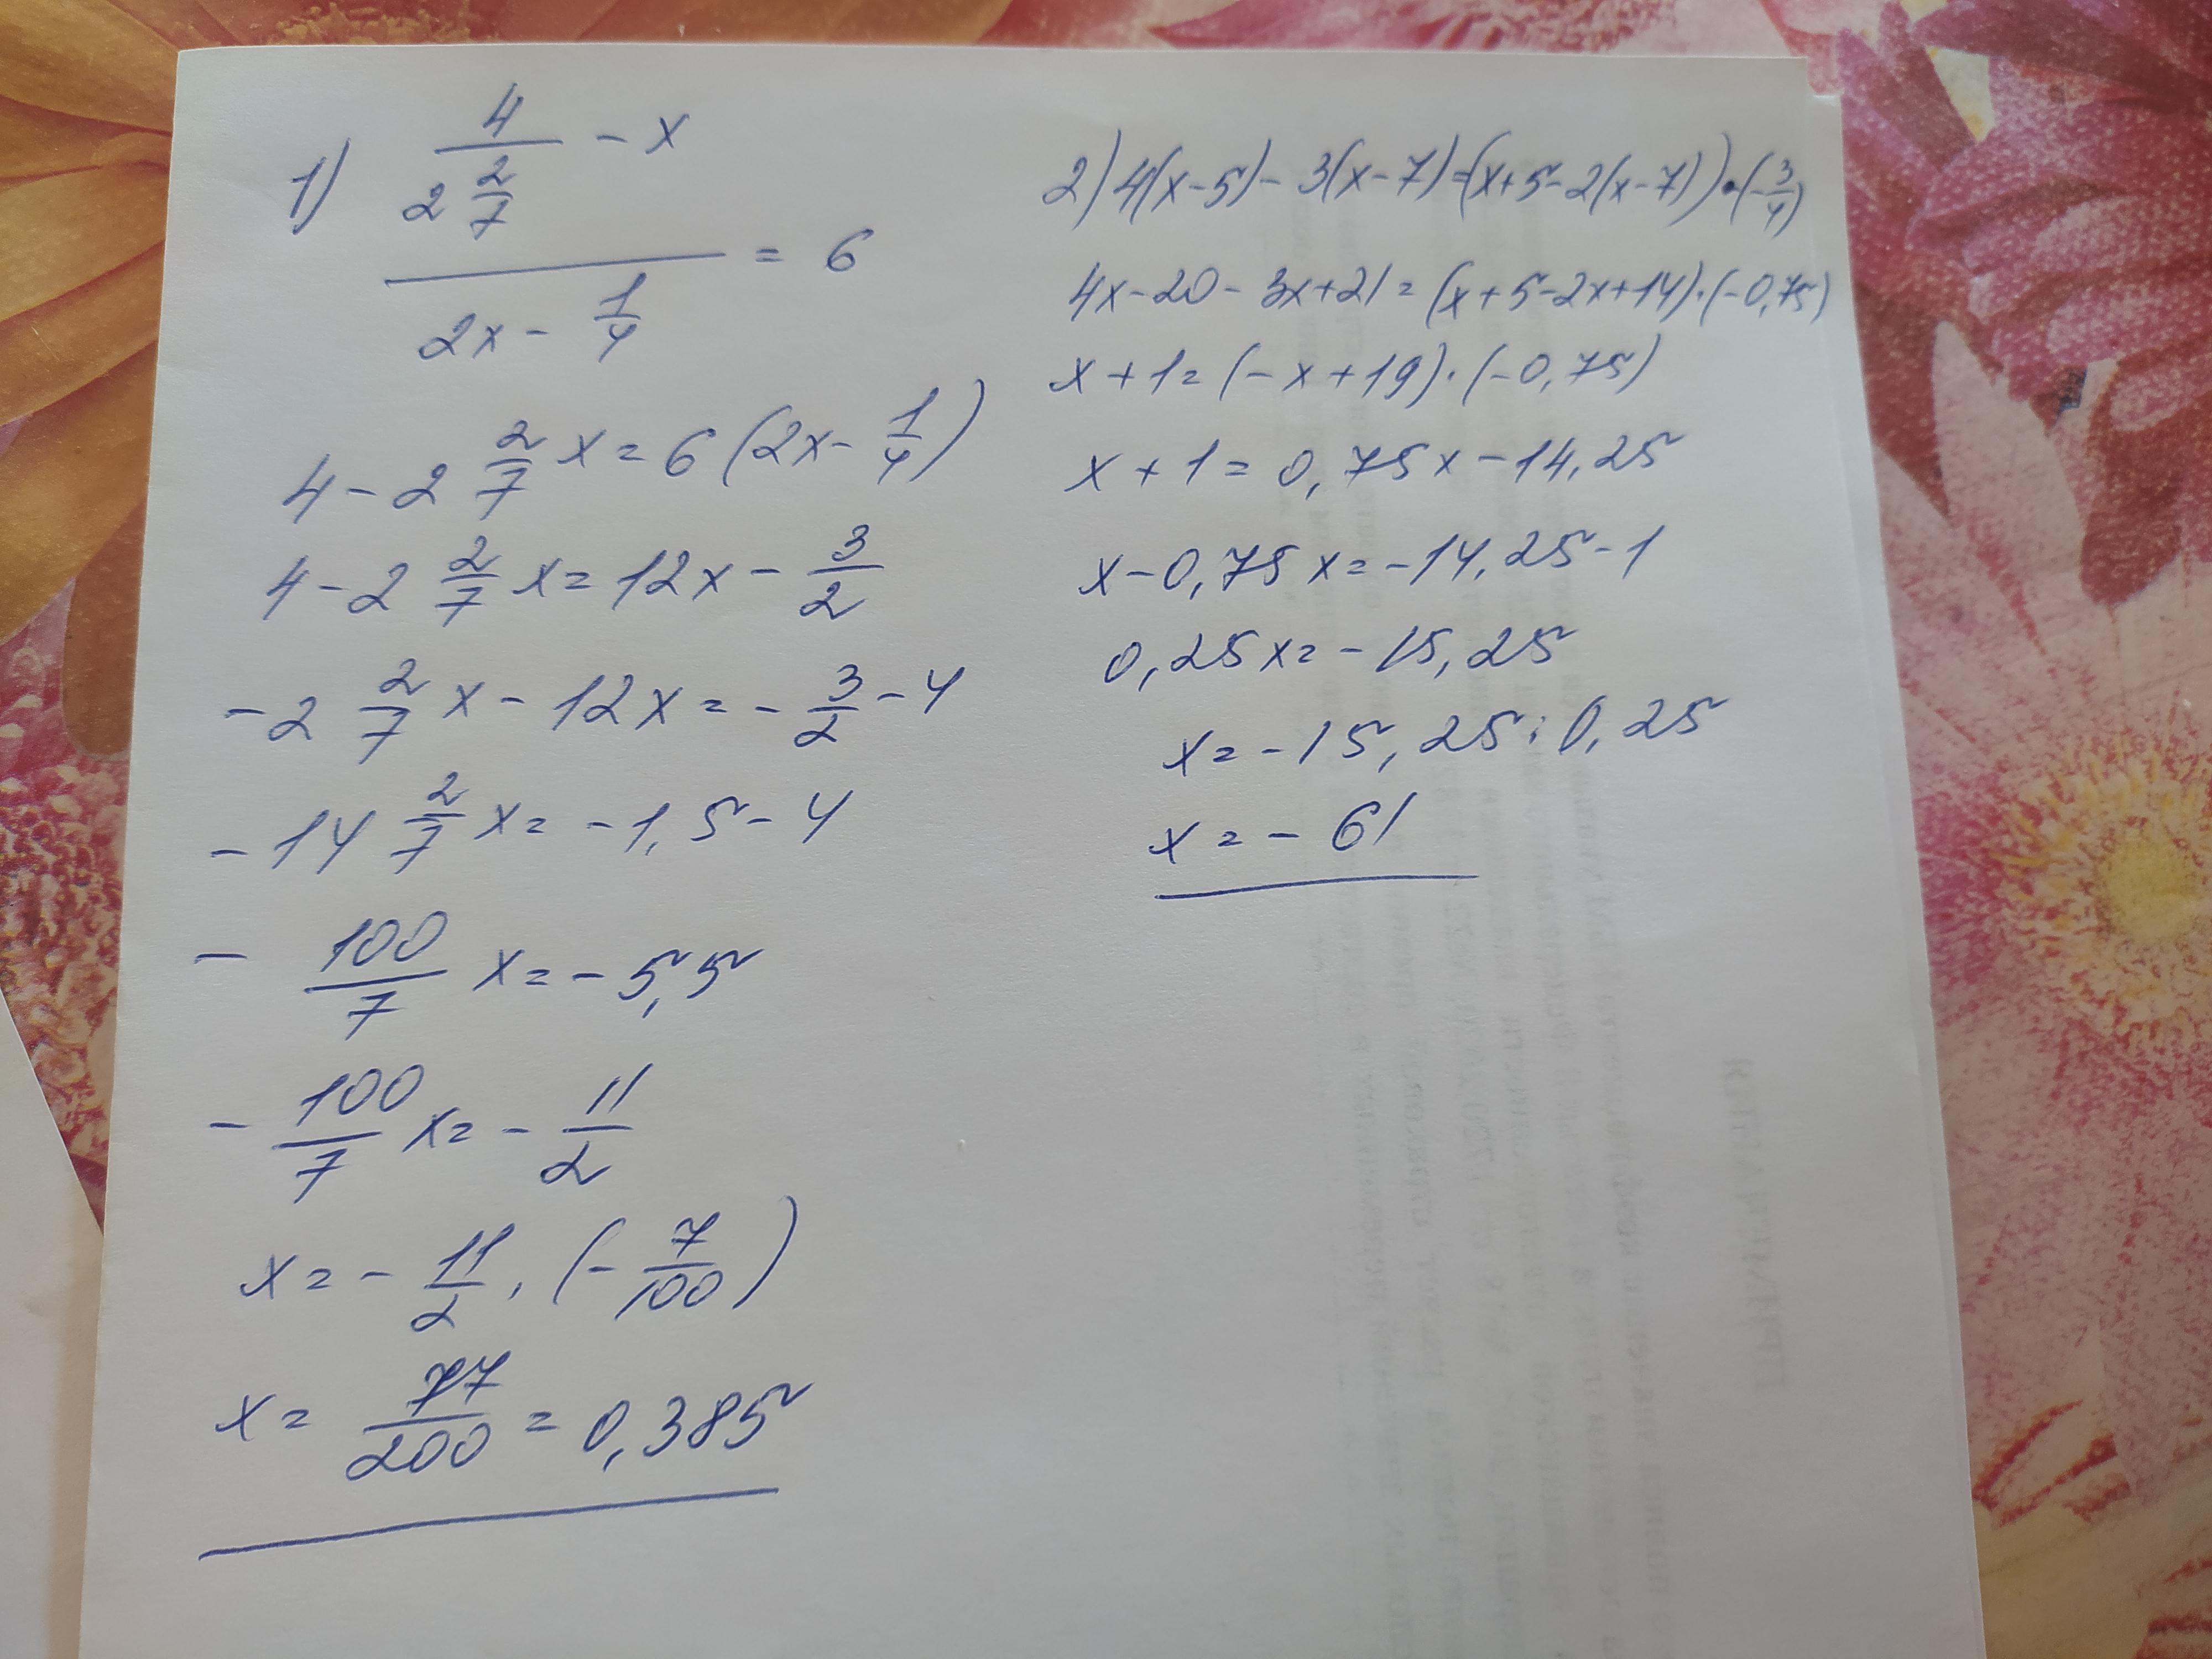 1) 4 / 2 2/7 − x
———— = 6
2x − 1/4
4 − 2 2/7 x = 6 (2x − 1/4)
4 − 2 2/7 x = 12x − 3/2
− 2 2/7 x − 12x = − 3/2 − 4
− 14 2/7 x = − 1,5 − 4
− 100/7 x = − 5,5
− 100/7 x = − 11/2
x = − 11/2 · (− 7/100)
x = 77/200 = 0,385
2) 4(x−5) − 3(x−7) = (x+5−2(x−7)) · (−3/4)
4x−20−3x+21 = (x+5−2x+14)·(−0,75)
x+1 = (−x+19)·(−0,75)
x+1 = 0,75x−14,25
x−0,75x = −14,25−1
0,25x = −15,25
x = −15,25 : 0,25
x = − 61